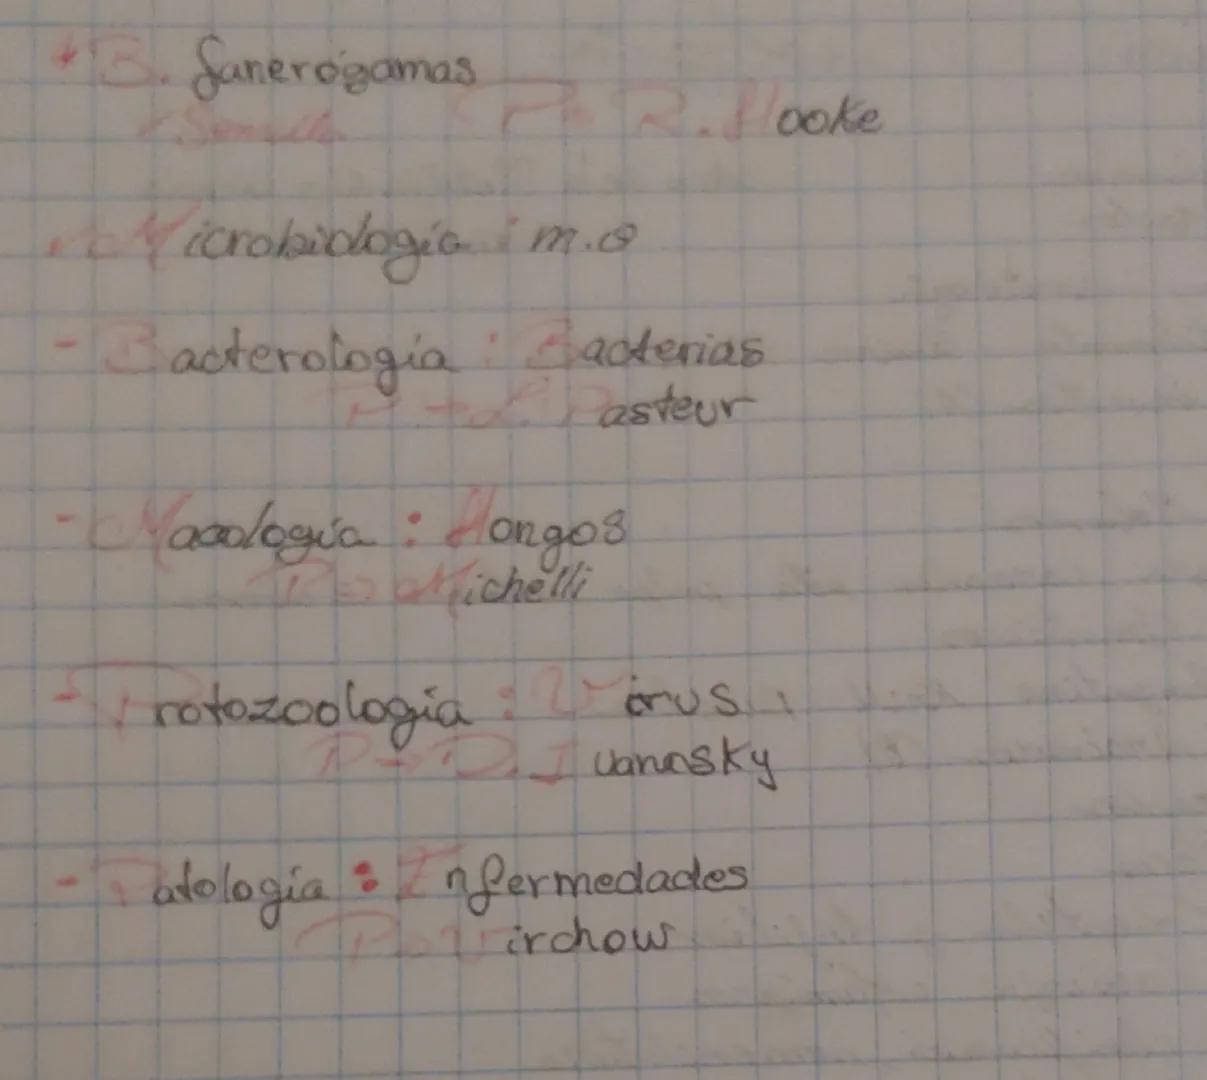 * B. fanerógamas
P → R. Hooke
Microbiología : m.o
- Bacterología : Bacterias
P → L. Pasteur
- Macología : Hongos
P → Michelli
- Protozoología : Virus
P → D. Ivanosky
- Patología : Enfermedades
P → Virchow